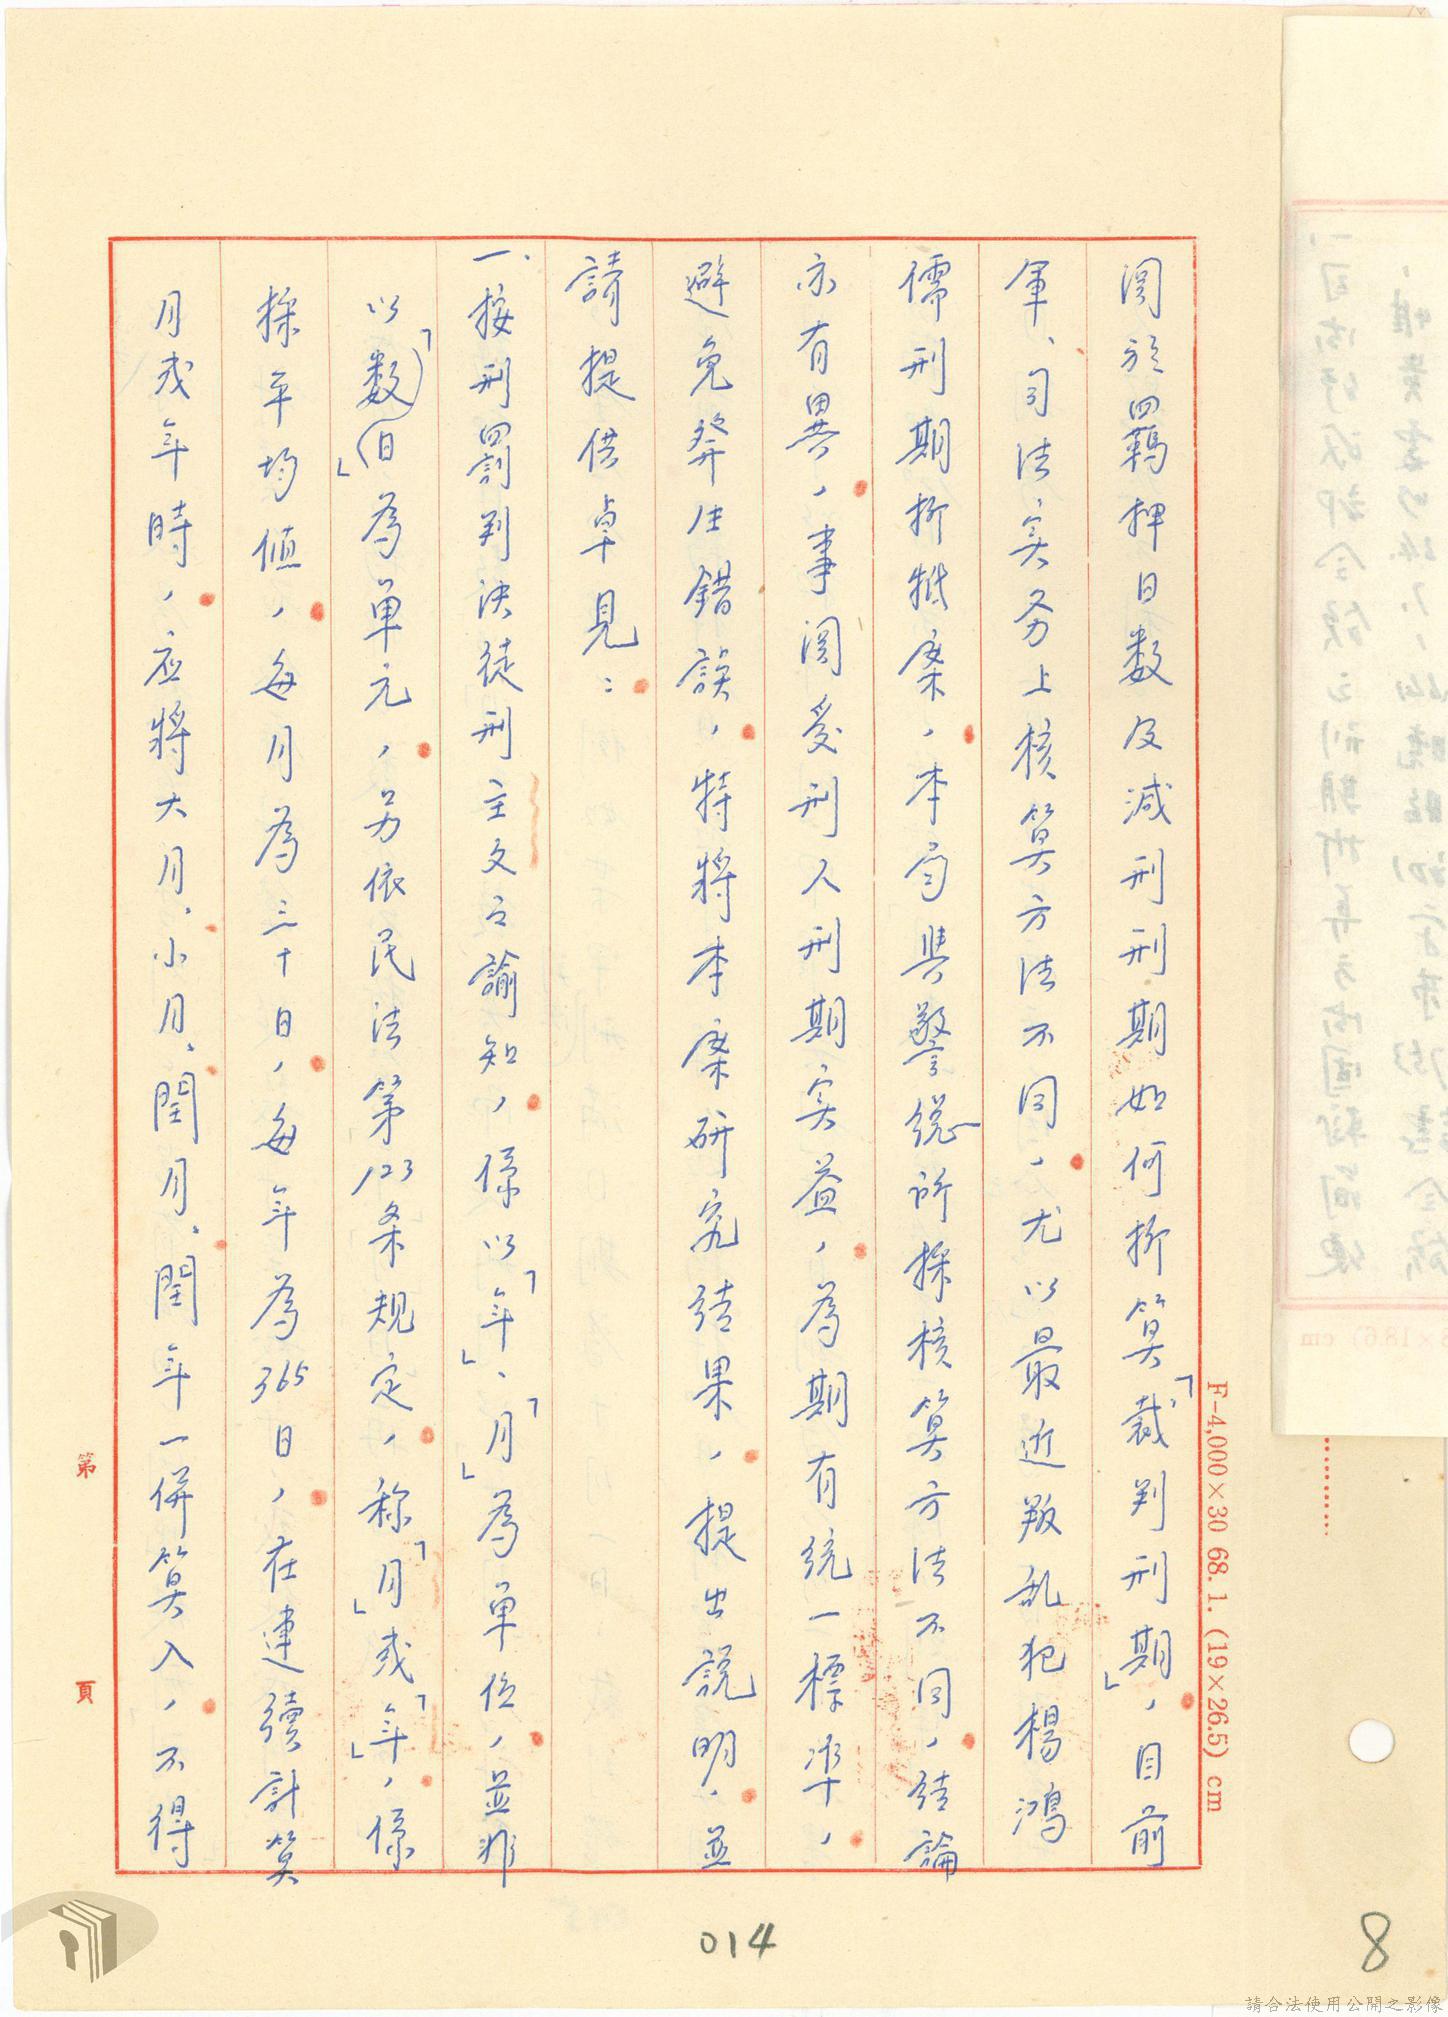 関於羈押日数及減刑刑期如何折算「裁判刑期」，目前
軍、司法实务上核算方法不同，尤以最近叛乱犯楊鴻
儒刑期折抵案，本局與警総所採核算方法不同，結論
亦有異，事関受刑人刑期实益，為期有統一標準，
避免發生錯誤，特將本案研究結果，提出説明，並
請提供卓見：
一、按刑罰判決徒刑主文之諭知，係以「年」、「月」為單位，並非
以「数日」為單元，另依民法第123条規定，称「月」或「年」，係
採平均值，每月為三十日，每年為365日，在連續計算
月或年時，应將大月、小月、閏月、閏年一併算入，不得
第 頁
F-4,000×30 68.1. (19×26.5) cm
014
8
請合法使用公開之影像